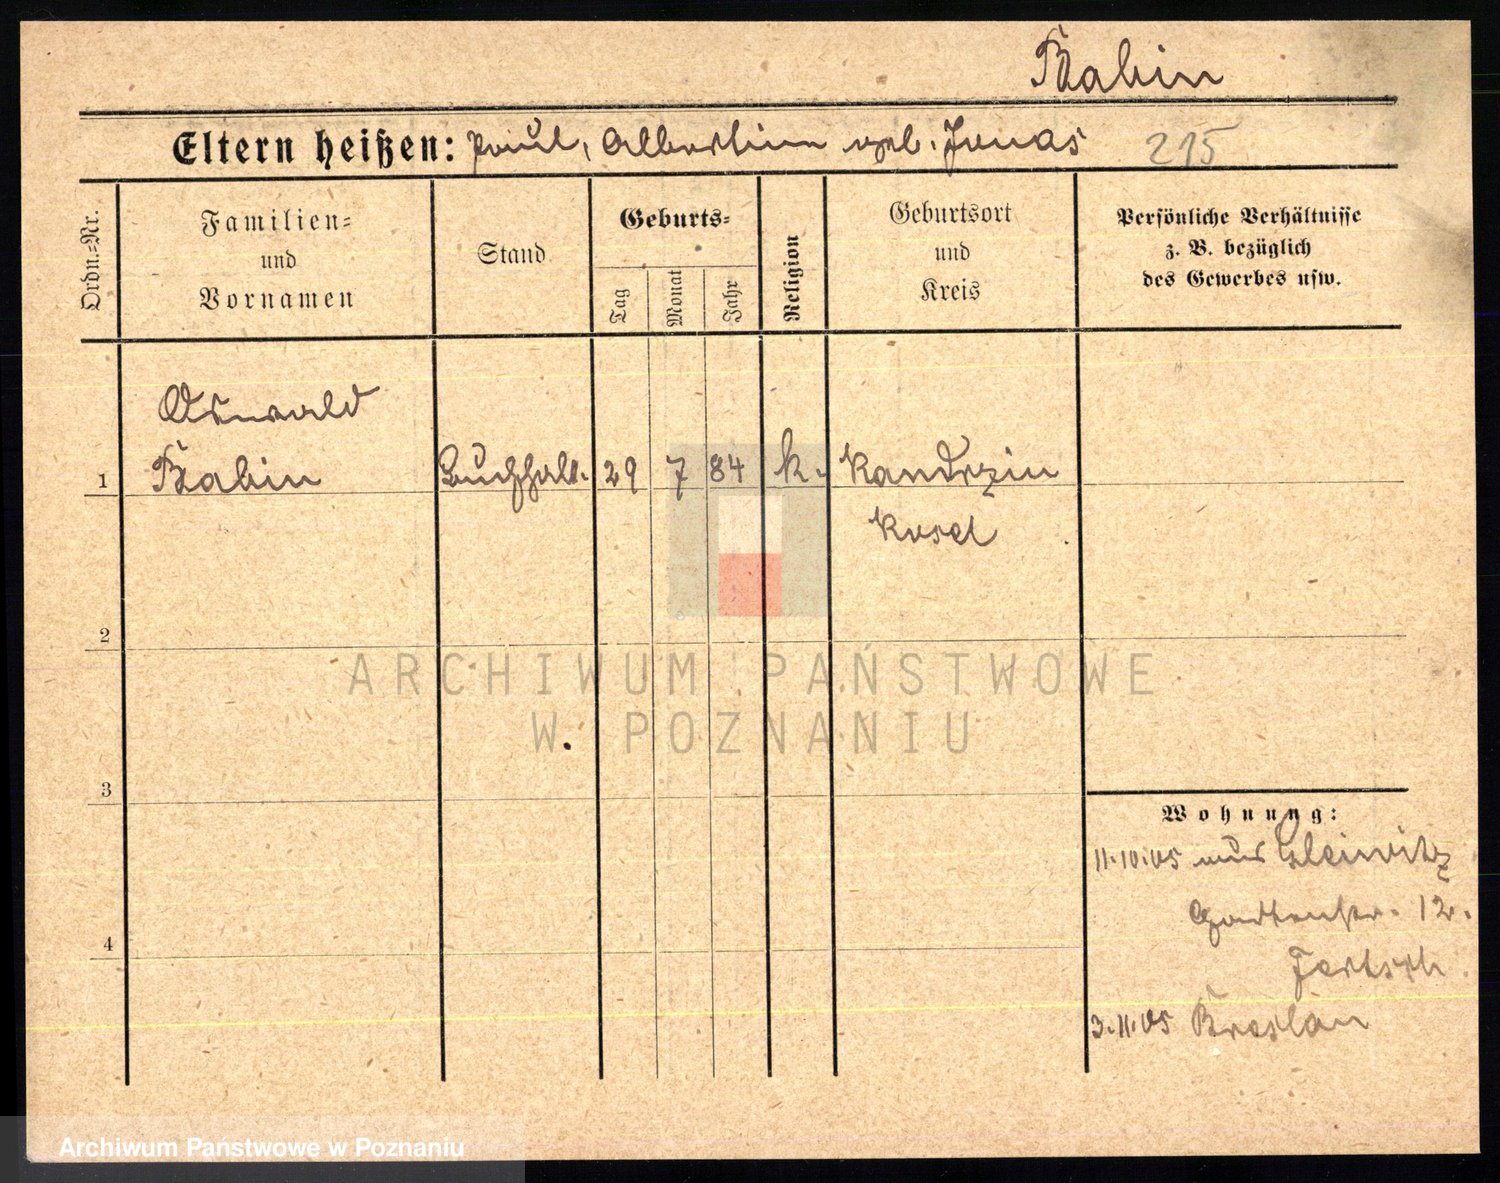 Babin
Eltern heißen: Paul, Albertine geb. Jonas 215
Ordn.-Nr.
Familien-
und
Vornamen
Stand
Geburts-
Tag
Monat
Jahr
Religion
Geburtsort
und
Kreis
Persönliche Verhältnisse
z. B. bezüglich
des Gewerbes usw.
Oswald
1 Babin Buchhalt. 29 7 84 k. Kandrzin
Kosel
2
3
4
Wohnung:
11.10.05 aus Gleiwitz
Gartenstr. 12.
3.11.05 Breslau
ARCHIWUM PAŃSTWOWE
W POZNANIU
Archiwum Państwowe w Poznaniu